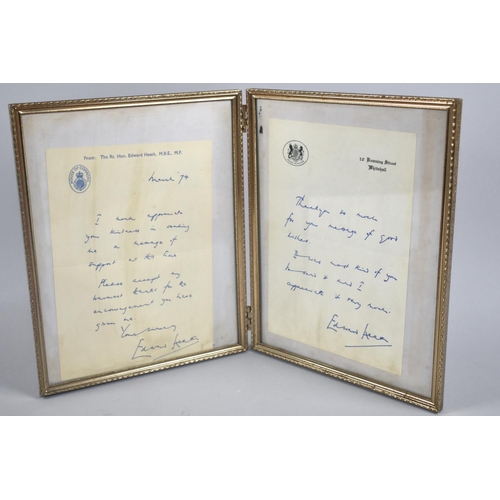 From: The Rt. Hon. Edward Heath, M.B.E., M.P.
March '74
I much appreciate
your kindness in sending
me a message of
support at this time
Please accept my
warmest thanks for the
encouragement you have
given me.
Yours sincerely
Edward Heath
10 Downing Street
Whitehall
Thank you so much
for your message of good
wishes.
It was most kind of you
to write & I
appreciate it very much.
Edward Heath